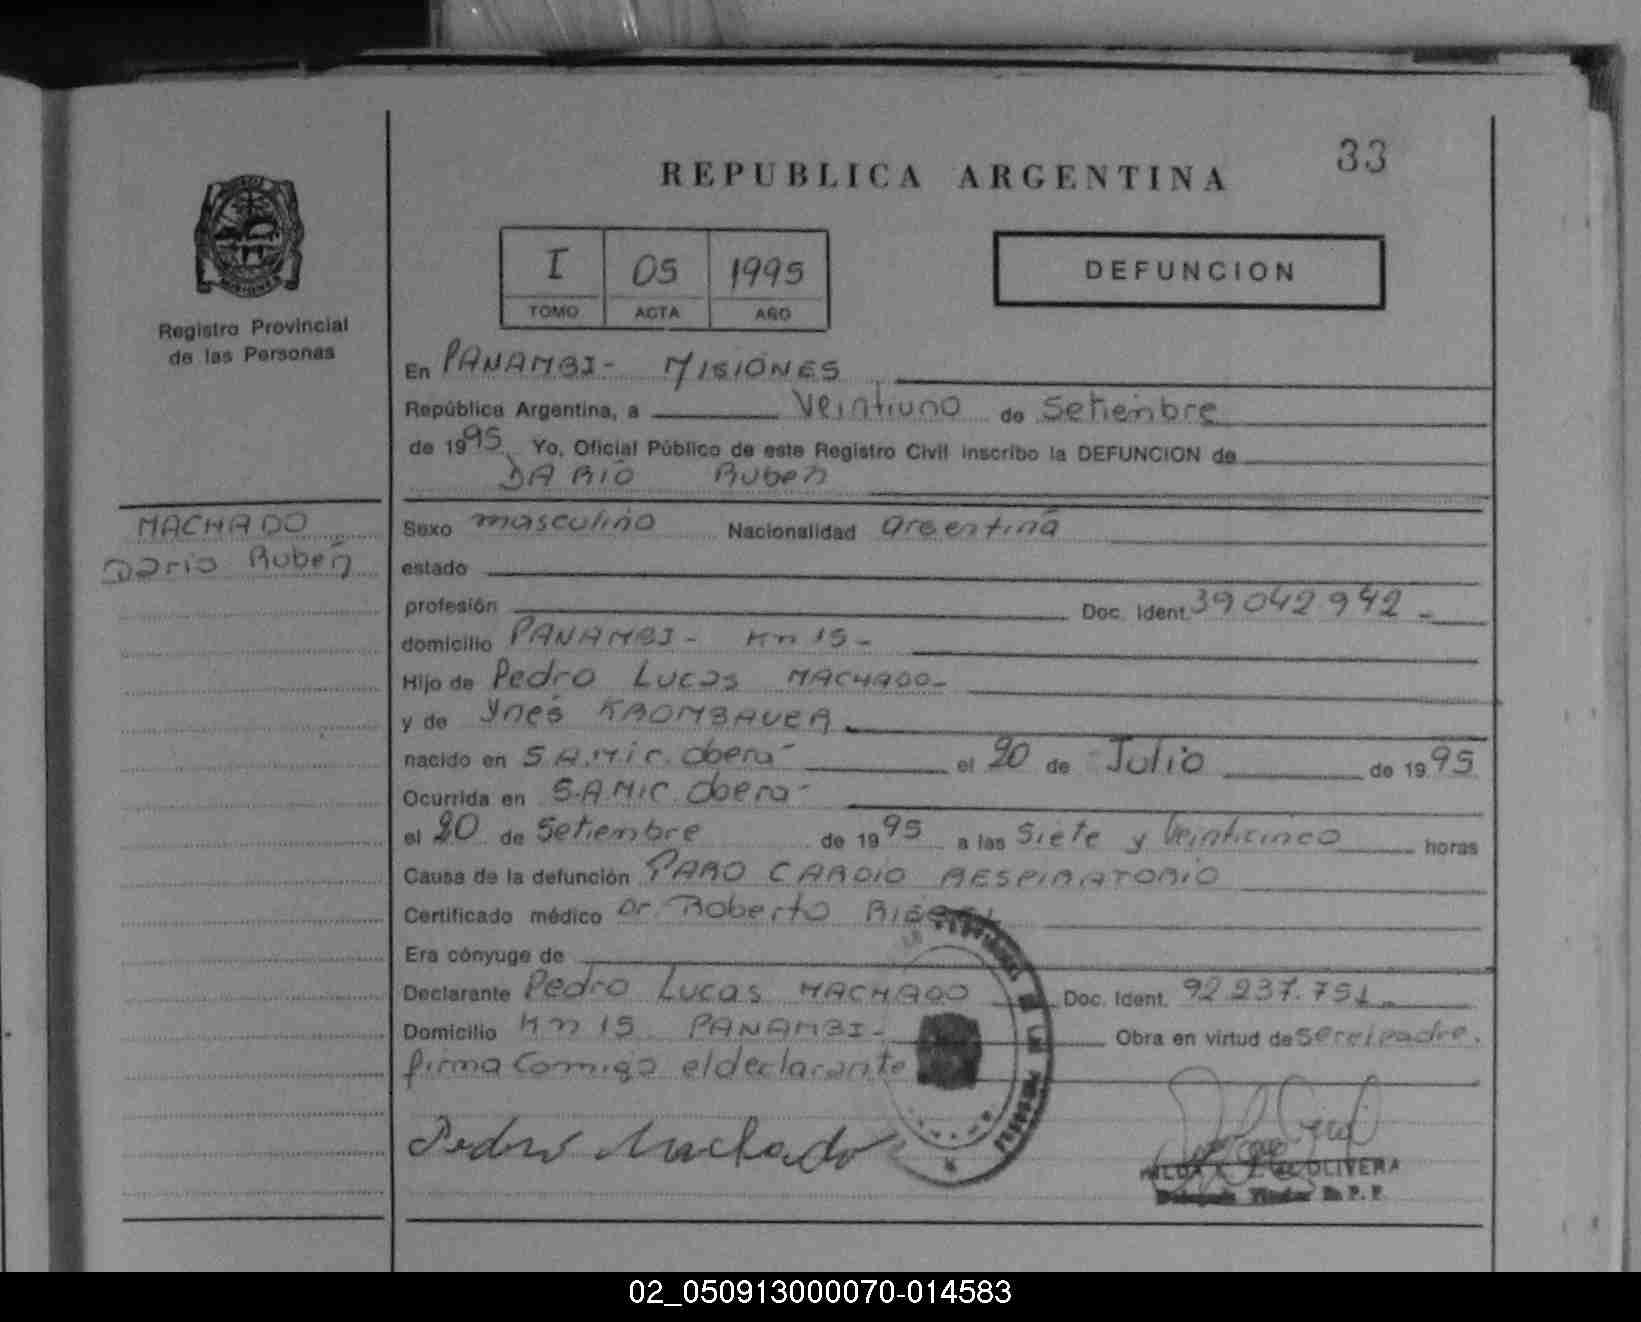 33
REPUBLICA ARGENTINA
I 05 1995
TOMO ACTA AÑO
DEFUNCION
Registro Provincial
de las Personas
En PANAMBI - MISIONES
República Argentina, a Veintiuno de Setiembre
de 1995 Yo, Oficial Público de este Registro Civil inscribo la DEFUNCION de
DARIO Ruben
MACHADO
Dario Ruben
Sexo masculino Nacionalidad argentina
estado
profesión Doc. Ident. 39042942 -
domicilio PANAMBI - Km 15 -
Hijo de Pedro Lucas MACHADO -
y de Ynes KROMBAUER
nacido en S.A.M.I.C. Obera - el 20 de Julio de 1995
Ocurrida en S.A.MIC. Obera -
el 20 de Setiembre de 1995 a las Siete y Veinticinco horas
Causa de la defunción PARO CARDIO RESPIRATORIO
Certificado médico Dr. Roberto
Era cónyuge de
Declarante Pedro Lucas MACHADO Doc. Ident. 92.237.751 -
Domicilio Km 15 PANAMBI - Obra en virtud de ser el padre.
firma Comigo el declarante
Pedro Machado
OLIVERA
02_050913000070-014583